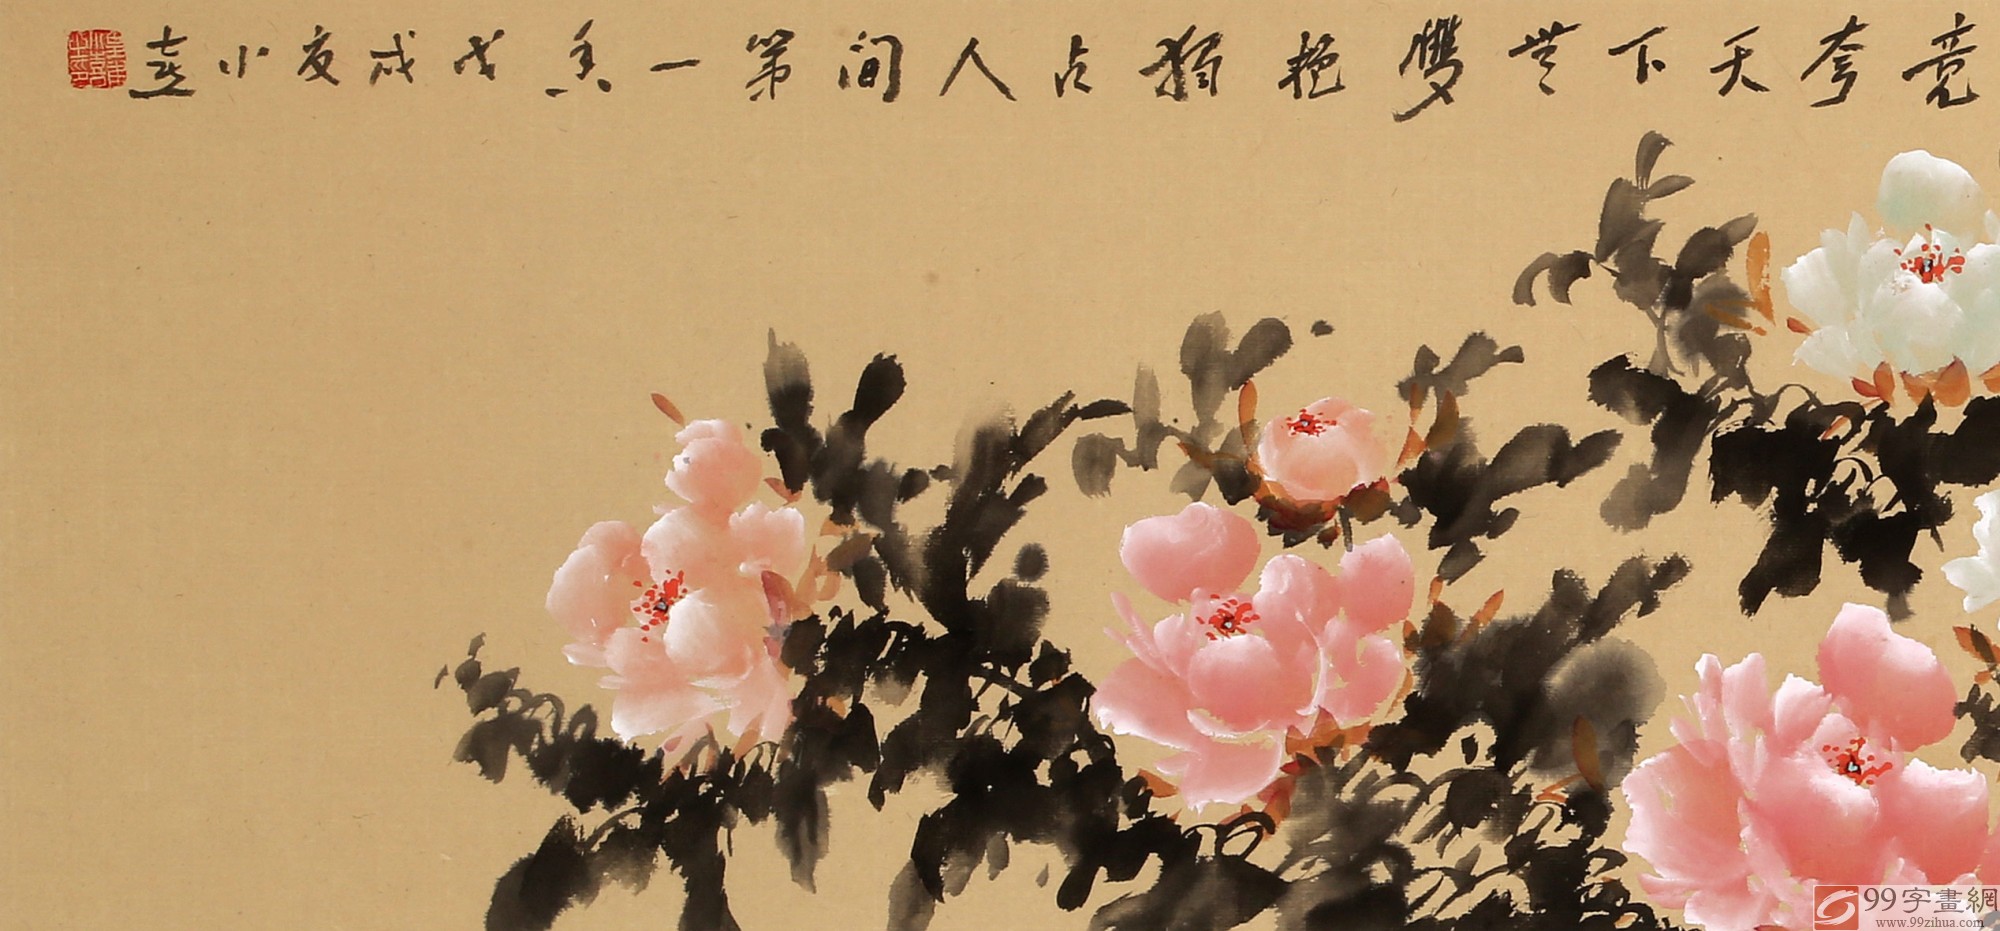 竞夸天下無雙艳獨占人间第一香戊戌夏小喜
99字畫網
www.99zihua.com